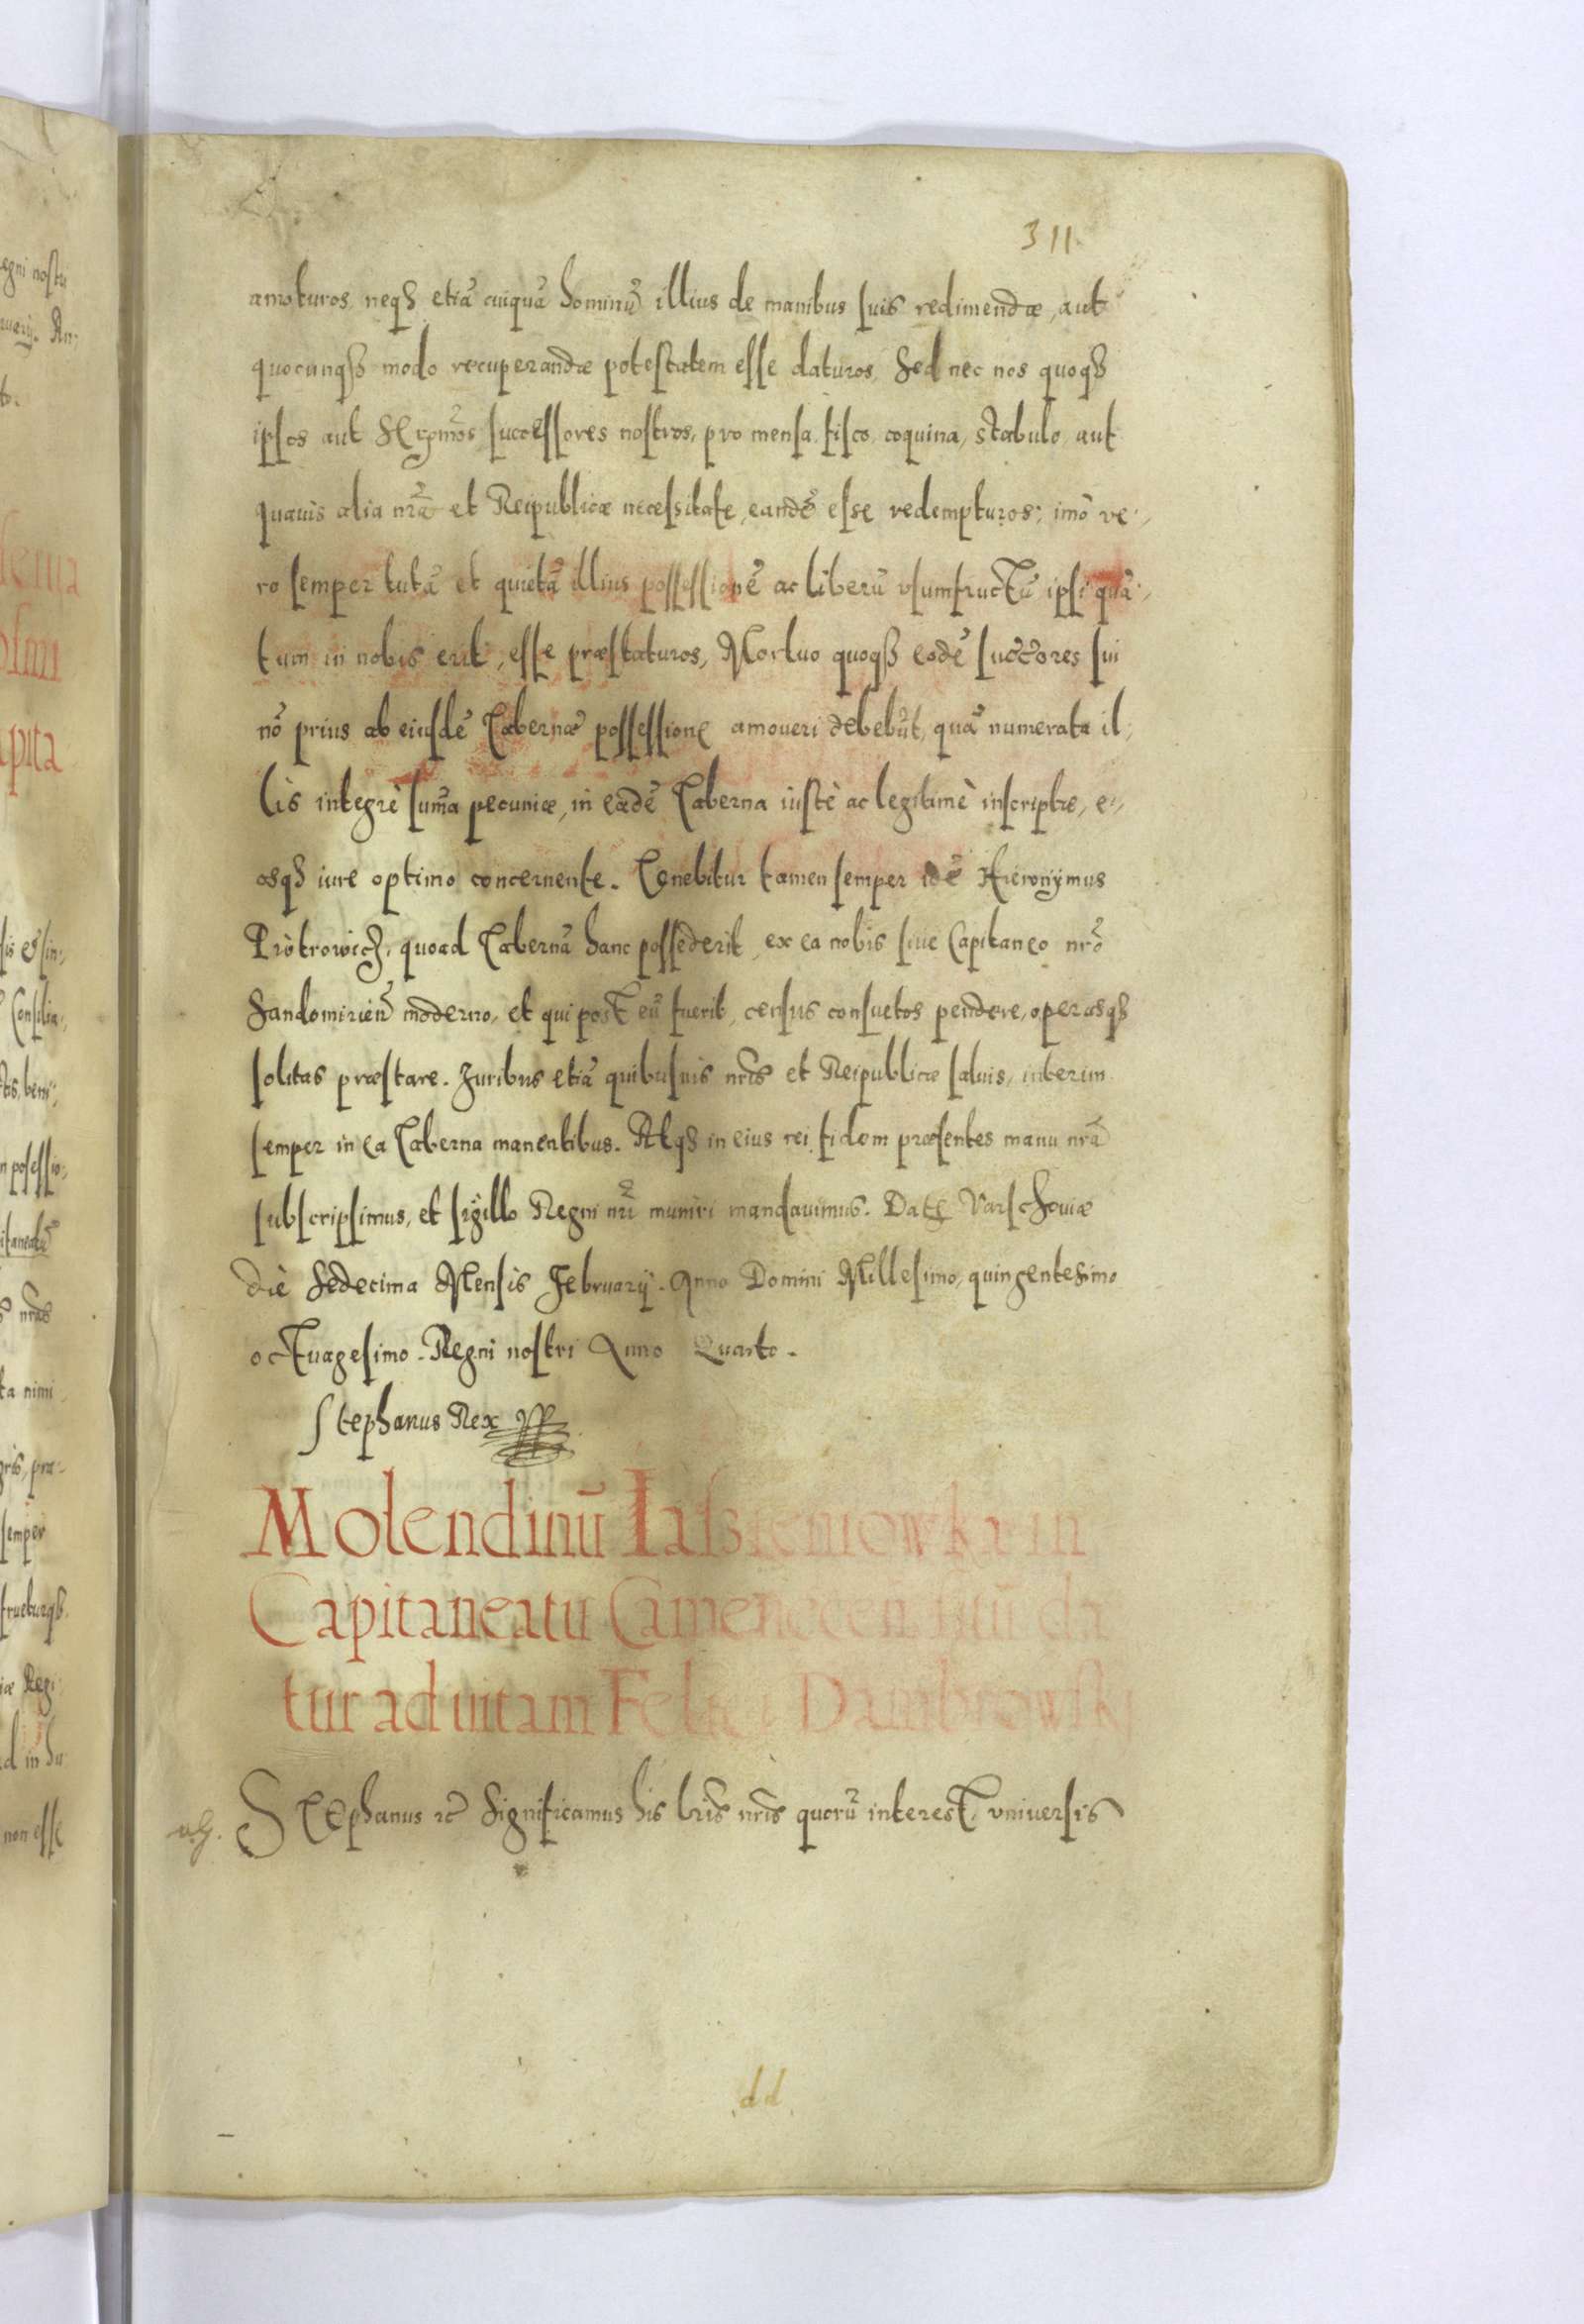 311
amoturos, neqȝ etiã cuiquã hominũ illius de manibus suis redimendæ, aut
quocunqȝ modo recuperandæ potestatem esse daturos, Sed nec nos quoqȝ
ipsos aut Sermos successores nostros, pro mensa, fisco, coquina, stabulo, aut
quauis alia nrã et Reipublicæ necessitate, eandẽ esse redempturos: imò ve-
ro semper tutã et quietã illius possessionẽ ac liberũ vsumfructũ ipsi quã-
tum in nobis erit, esse præstaturos, Mortuo quoqȝ eodẽ succõres sui
nõ prius ab eiusdẽ Tabernæ possessione amoueri debebũt, quã numerata il-
lis integrè sum̃a pecuniæ, in eadẽ Taberna iustè ac legitimè inscriptæ, e-
osqȝ iure optimo concernente. Tenebitur tamen semper idẽ Hieronymus
Piotrowicz, quoad Tabernã hanc possederit, ex ea nobis siue Capitaneo nrõ
Sandomirieñ moderno, et qui post eũ fuerit, census consuetos pendere, operasqȝ
solitas præstare. Juribus etiã quibusuis nr̃is et Reipublicæ saluis, interim
semper in ea Taberna manentibus. Atqȝ in eius rei fidem præsentes manu nrã
subscripsimus, et sigillo Regni nr̃i muniri mandauimus. Datę Varschouiæ
die Sedecima Mensis February. Anno Domini Millesimo, quingentesimo
octuagesimo. Regni nostri Anno Quarto.
Stephanus Rex
Molendinũ Iasieniowka in
Capitaneatu Camenecen situ̅ da
tur ad uitam Felici Dambrowski
Stephanus rc̃ Significamus his lr̃is nr̃is quorũ interest vniuersis
dd